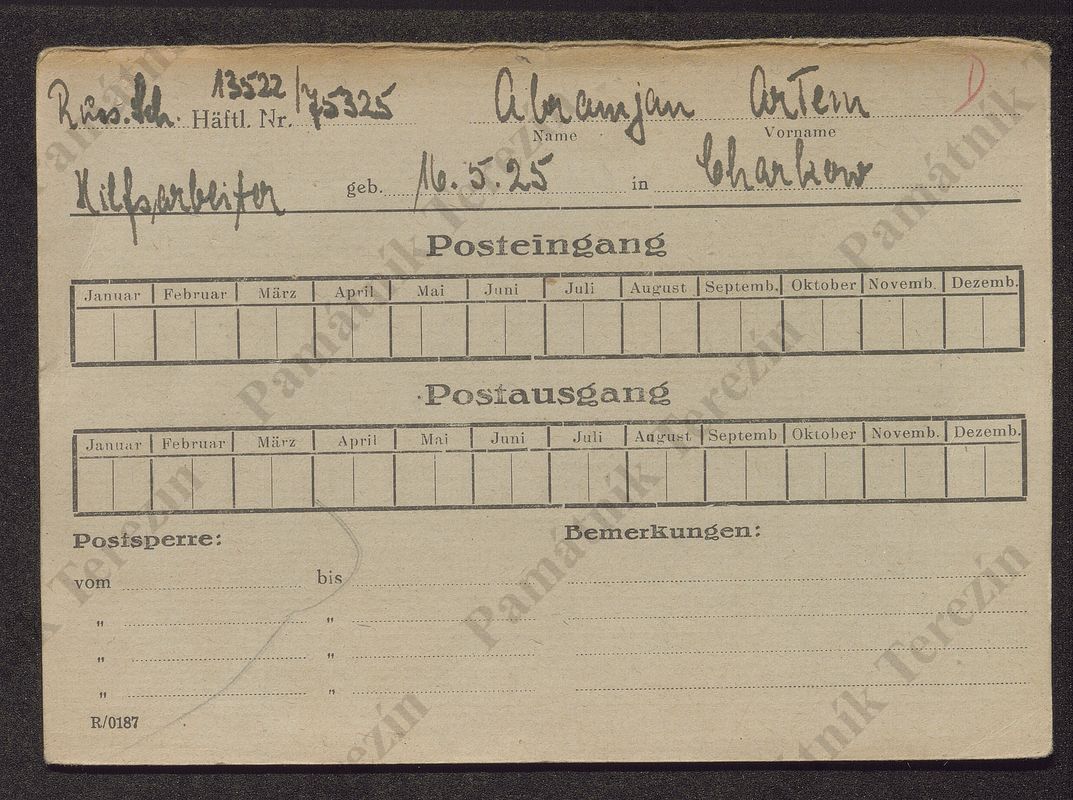 Russ. Sch. Häftl. Nr. 13522/75325 Abramjan Artem D
Name Vorname
Hilfsarbeiter geb. 16.5.25 in Charkow
Posteingang
Januar Februar März April Mai Juni Juli August Septemb. Oktober Novemb. Dezemb.
Postausgang
Januar Februar März April Mai Juni Juli August Septemb Oktober Novemb. Dezemb.
Postsperre: Bemerkungen:
vom bis
" "
" "
" "
R/0187
Památník Terezín